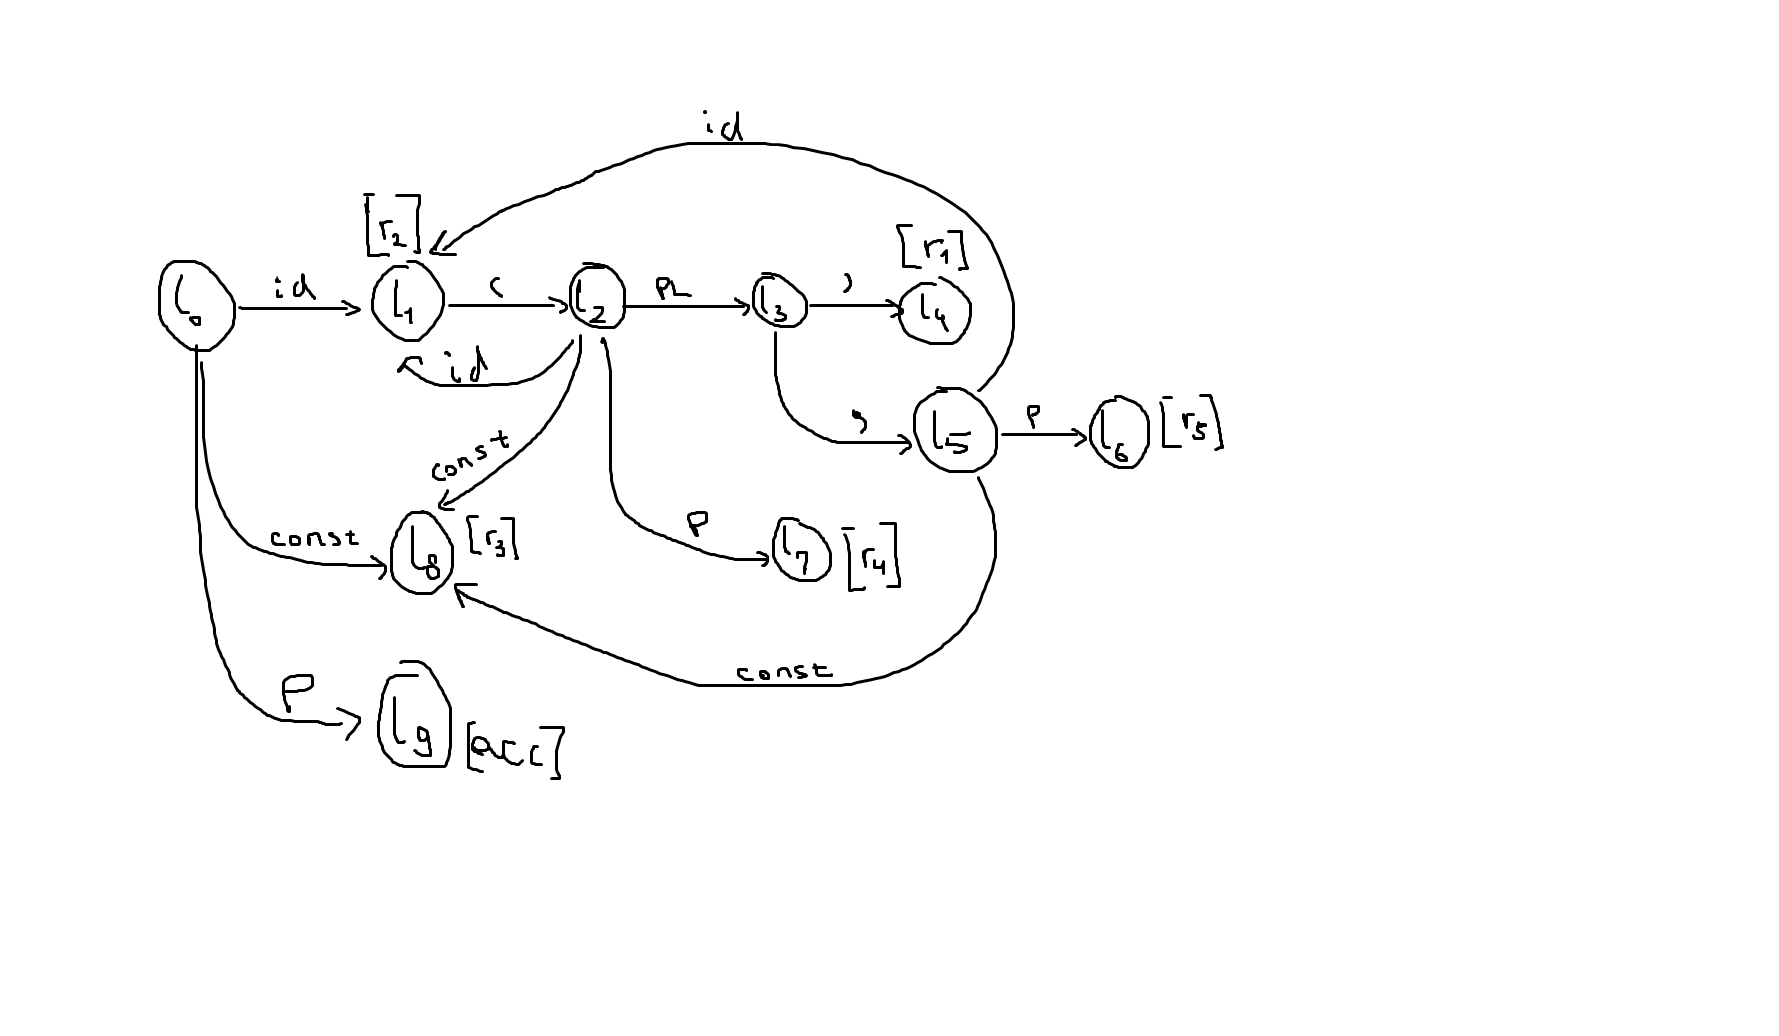 id
[r2]
[r1]
l0 id l1 ( l2 PL l3 ) l4
id
, l5 P l6 [r5]
const
const l8 [r3] P l7 [r4]
const
P l9 [acc]